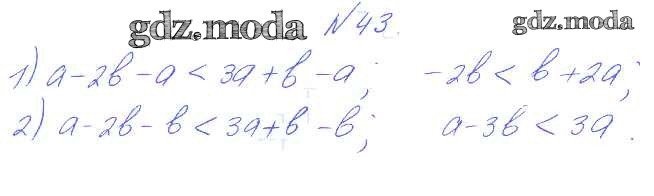 gdz.moda №43. gdz.moda
1) a-2b-a<3a+b-a; -2b<b+2a;
2) a-2b-b<3a+b-b; a-3b<3a.